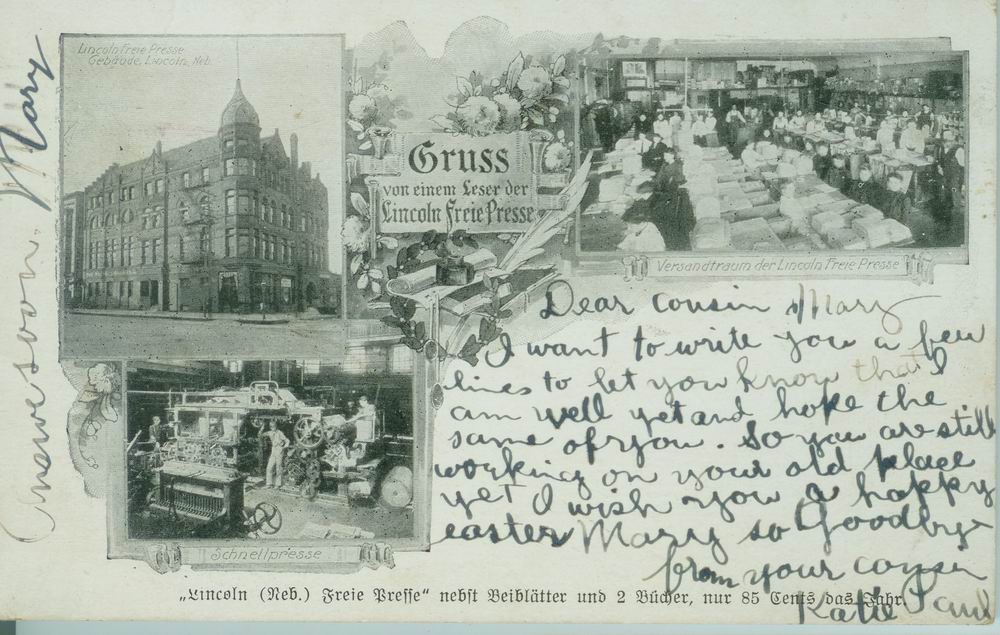 Lincoln Freie Presse
Gebäude, Lincoln, Neb.
Gruss
von einem Leser der
Lincoln Freie Presse
Versandtraum der Lincoln Freie Presse
Dear cousin Mary
I want to write you a few
lines to let you know that I
am well yet and hope the
same of you. So you are still
working on your old place
yet I wish you a happy
easter Mary so Goodby
from your cousin
Katie Paul
Schnellpresse
„Lincoln (Neb.) Freie Presse“ nebst Beiblätter und 2 Bücher, nur 85 Cents das Jahr.
Answe soon. Mary